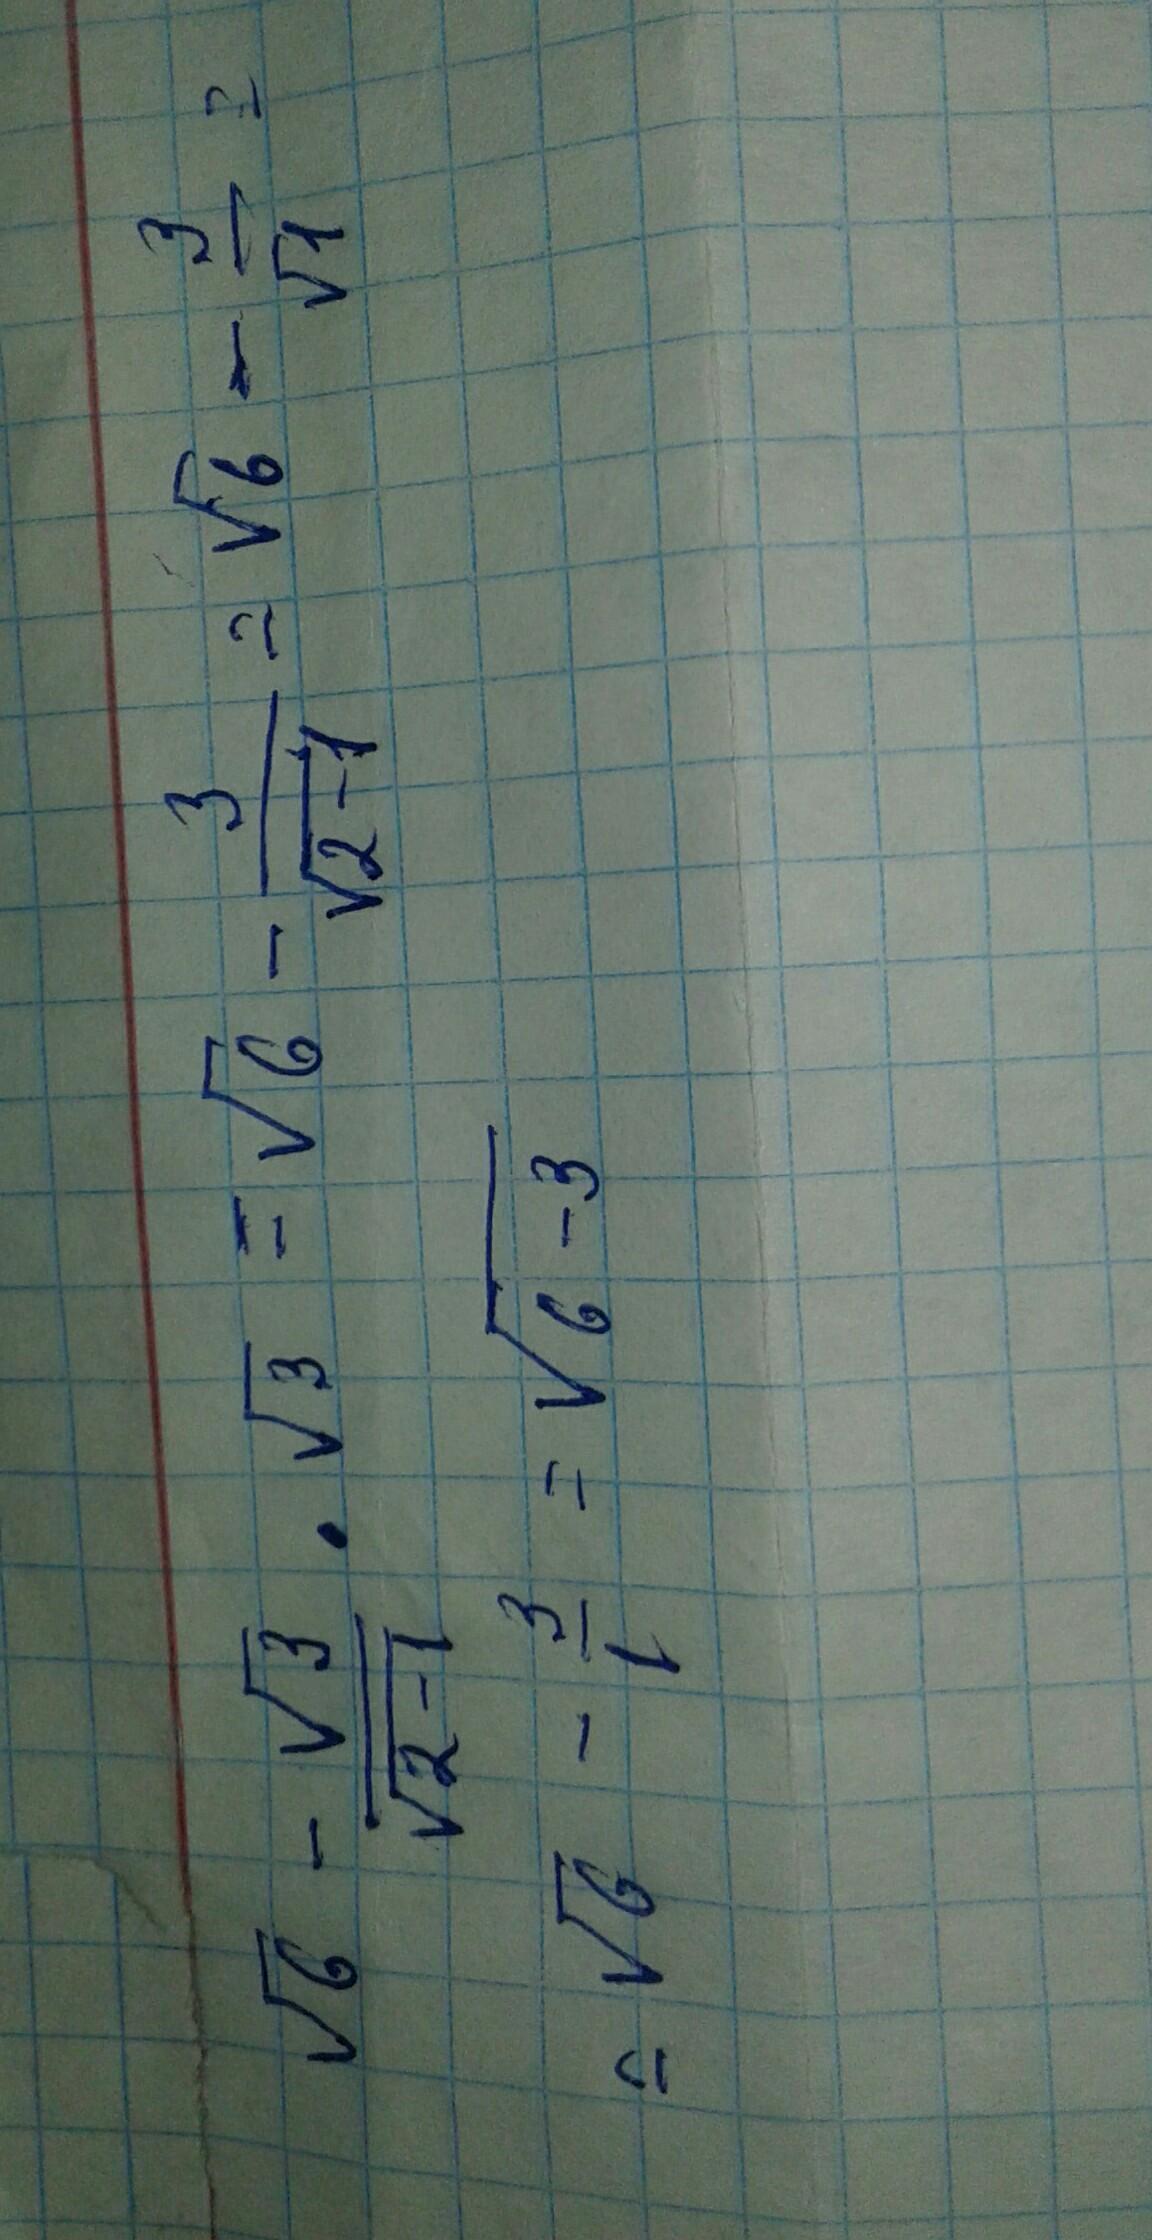 √6 - √3/√(2-1) · √3 = √6 - 3/√(2-1) = √6 - 3/√1 =
= √6 - 3/1 = √(6-3)